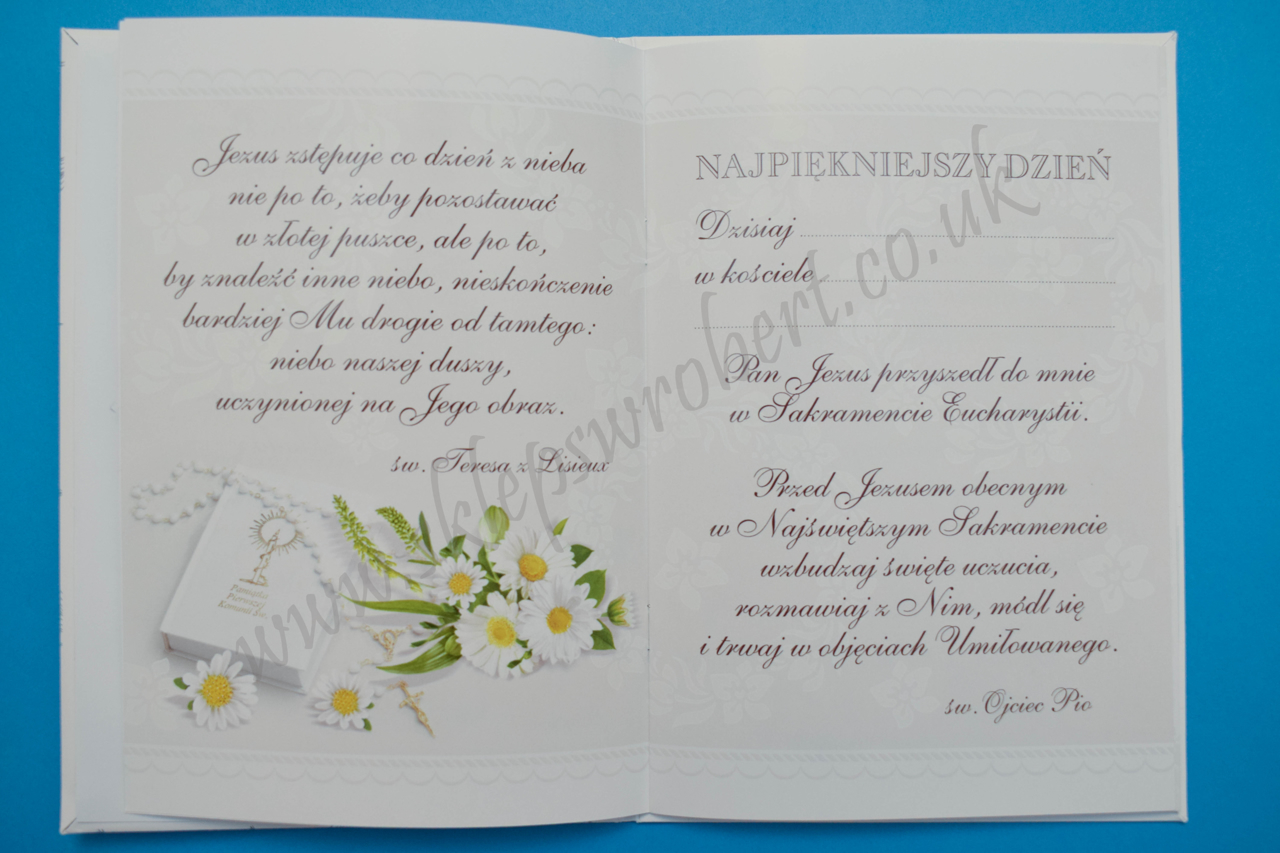 Jezus zstępuje co dzień z nieba
nie po to, żeby pozostawać
w złotej puszce, ale po to,
by znaleźć inne niebo, nieskończenie
bardziej Mu drogie od tamtego:
niebo naszej duszy,
uczynionej na Jego obraz.
św. Teresa z Lisieux
Pamiątka
Pierwszej
Komunii Św.
NAJPIĘKNIEJSZY DZIEŃ
Dzisiaj
w kościele
Pan Jezus przyszedł do mnie
w Sakramencie Eucharystii.
Przed Jezusem obecnym
w Najświętszym Sakramencie
wzbudzaj święte uczucia,
rozmawiaj z Nim, módl się
i trwaj w objęciach Umiłowanego.
św. Ojciec Pio
www.sklepswrobert.co.uk